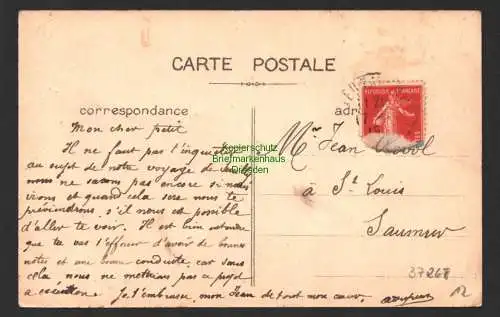 CARTE POSTALE
correspondance
Mon cher petit
Il ne faut pas t'inquiéter
au sujet de notre voyage de
nous ne savons pas encore si nous
irons et quand cela sera nous te
préviendrons, s'il nous est possible
d'aller te voir. Il est bien entendu
que tu vas t'efforcer d'avoir de bonnes
notes et une bonne conduite, car sans
cela nous ne mettrions pas ce projet
à exécution. Je t'embrasse, mon Jean de tout mon cœur.
REPUBLIQUE FRANÇAISE
Mr Jean
à St Louis
Saumur
37268
12
Kopierschutz
Briefmarkenhaus
Dresden